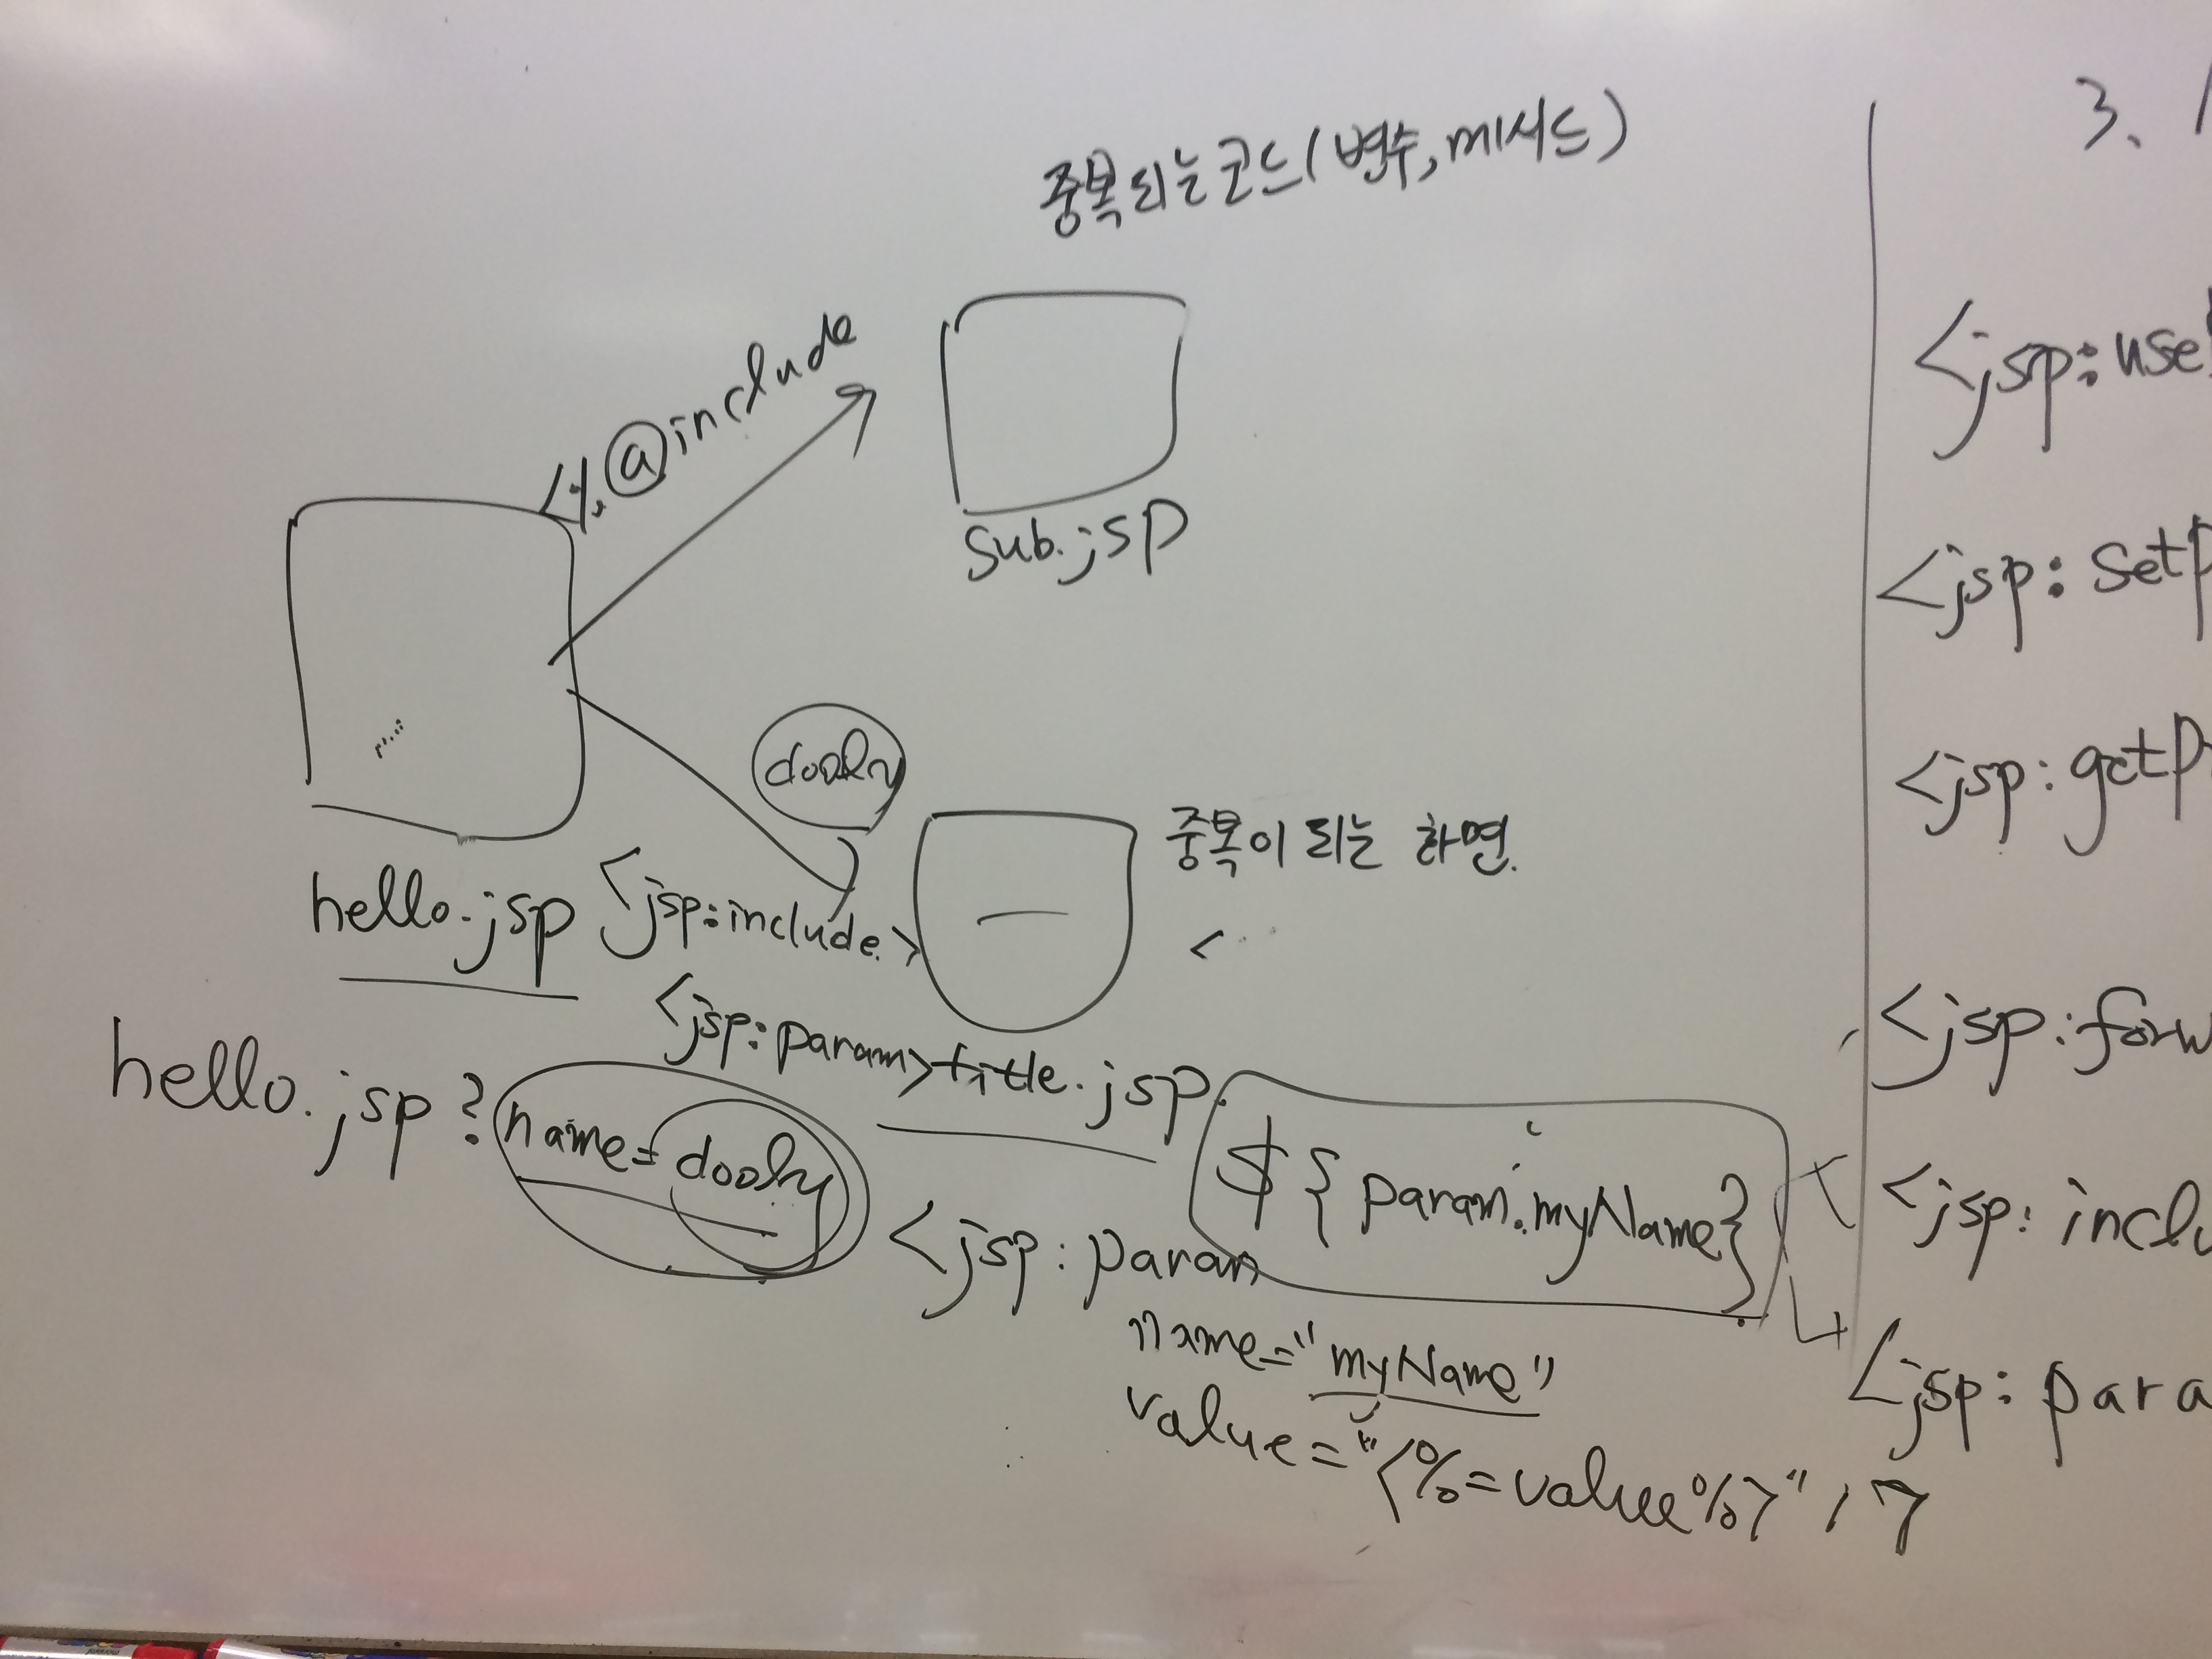 중복되는코드(변수,메서드)
<%@include
sub.jsp
dooly
중복이 되는 화면.
hello.jsp
<jsp:include>
<jsp:param>
title.jsp
hello.jsp?name=dooly
${param.myName}
<jsp:param
name="myName"
value="<%=value%>"/>
3.
<jsp:use
<jsp:setP
<jsp:getPr
<jsp:forw
<jsp:inclu
<jsp:para